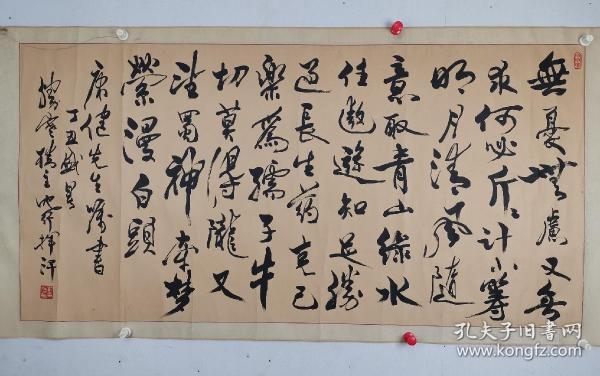 無憂無慮又無
求何必斤斤計小籌
明月清風隨
意取青山綠水
任遨遊知足勝
過長生藥克己
樂為孺子牛
切莫得隴又
望蜀神牽梦
縈漫白頭
康健先生嘱書
丁丑盛暑
主
挥汗
孔夫子旧书网
www.kongfz.com